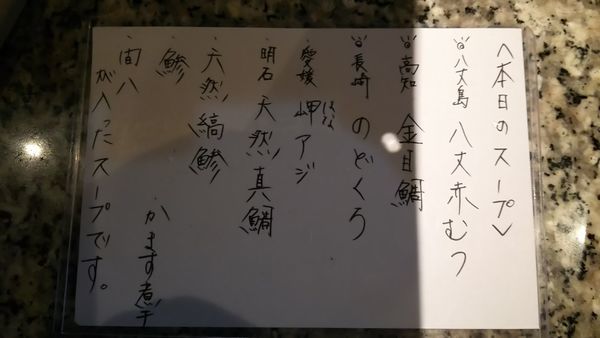 〈本日のスープ〉
・八丈島 八丈赤むつ
・高知 金目鯛
・長崎 のどくろ
・愛媛 岬アジ
はな
・明石 天然真鯛
・天然縞鯵
・鯵
・間八 ・かます煮干
が入ったスープです。